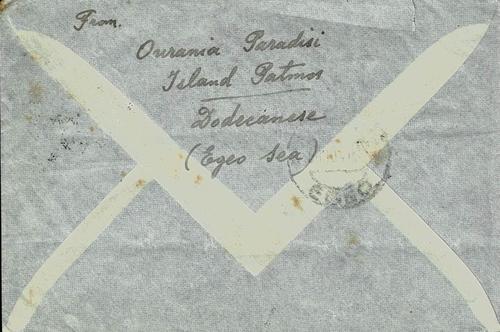 From.
Ourania Paradisi
Island Patmos
Dodecanese
(Egeo Sea)